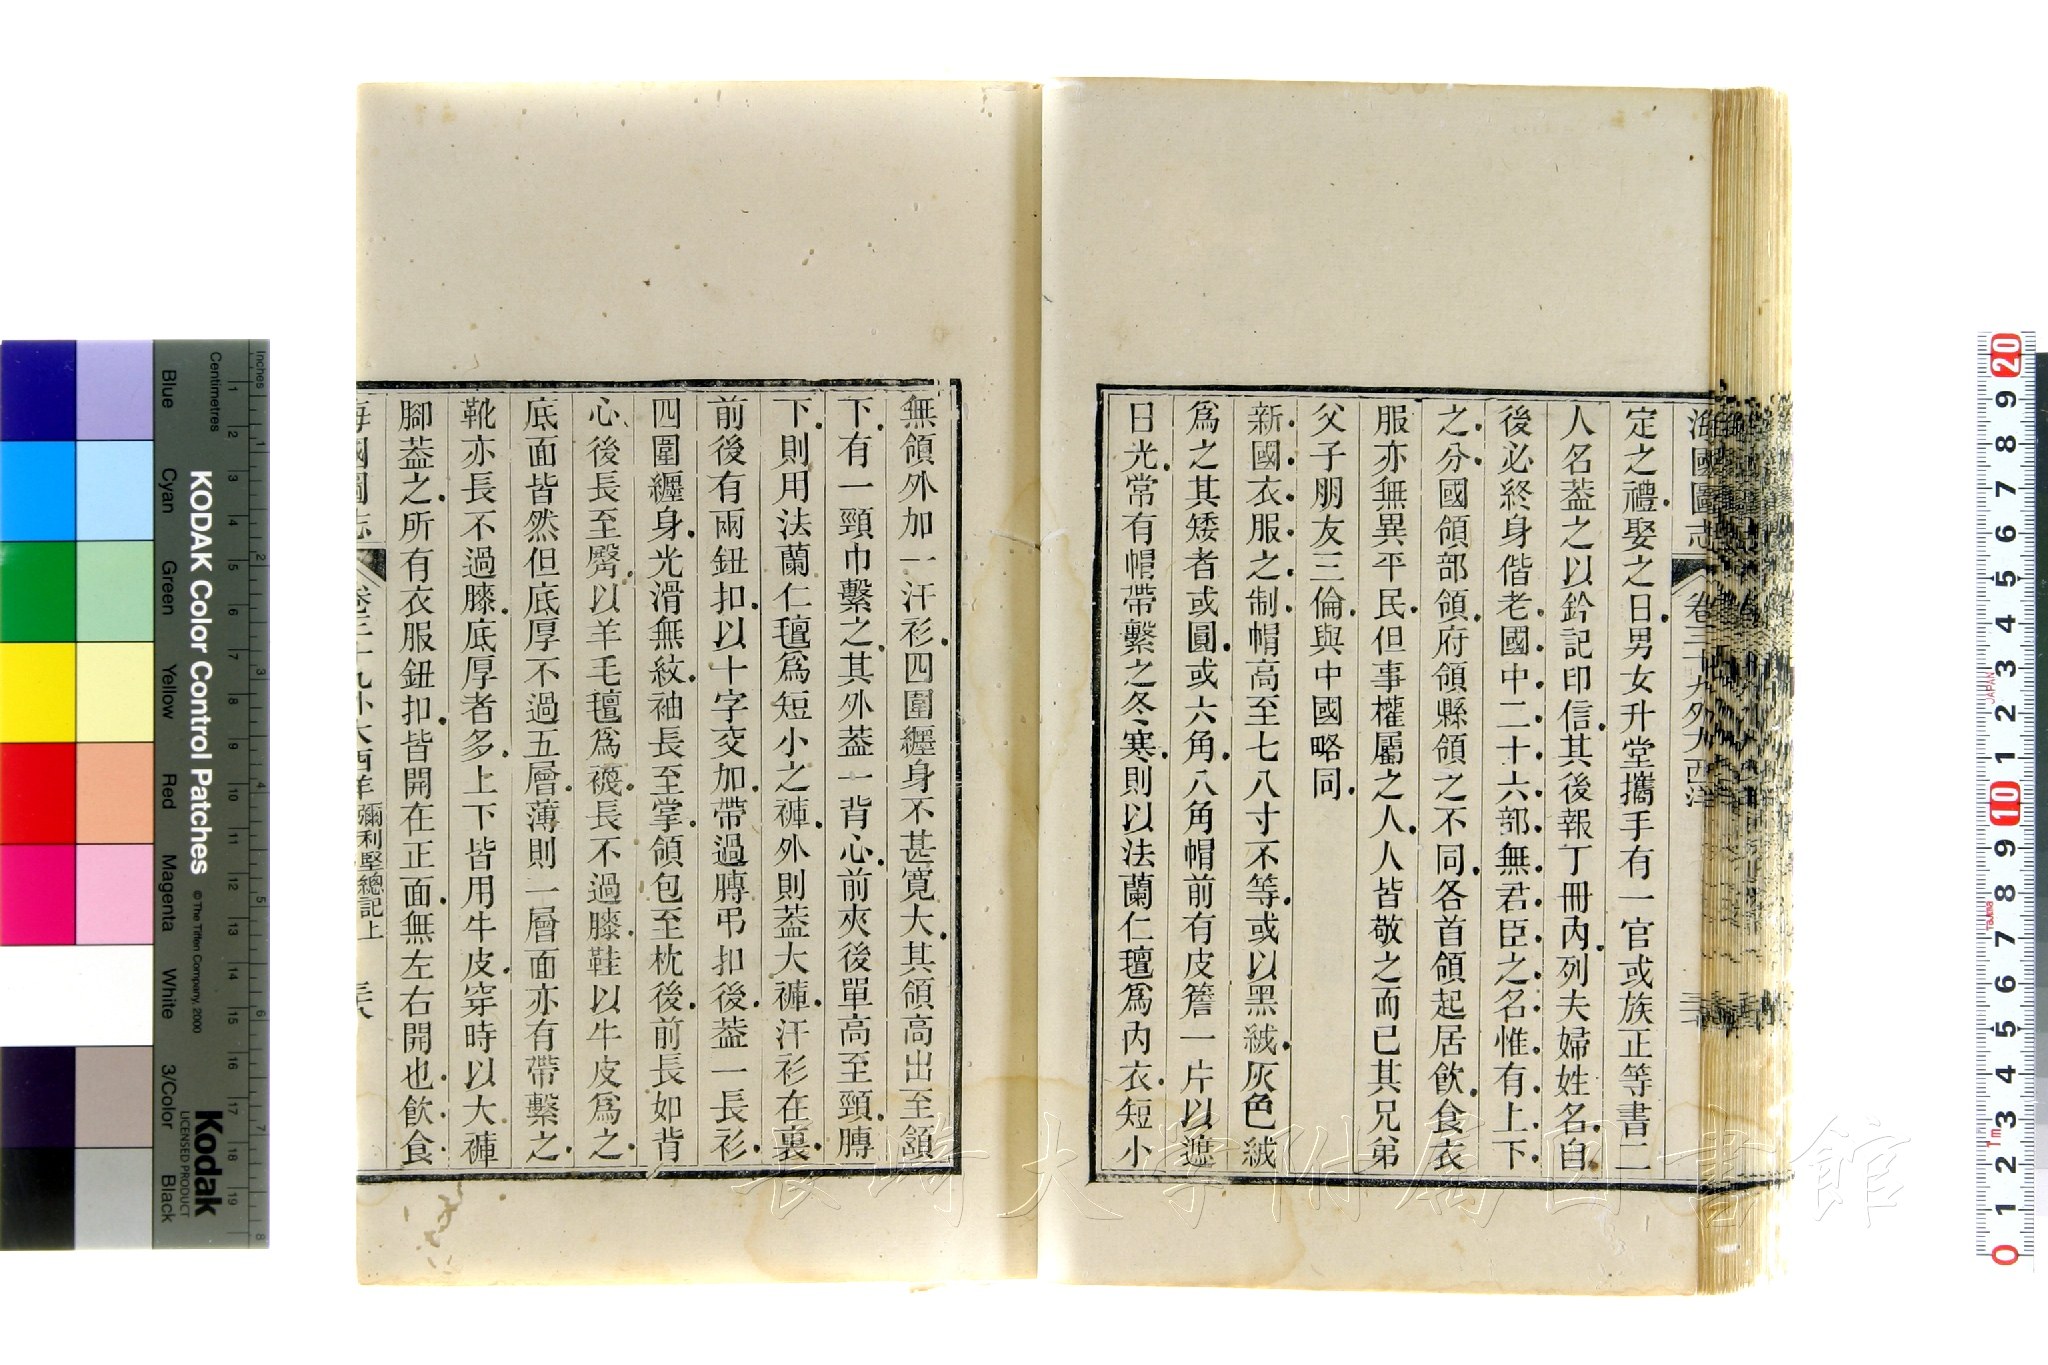 海國圖志
卷三十九外大西洋
定之禮娶之日男女升堂攜手有一官或族正等書二
人名葢之以鈐記印信其後報丁冊內列夫婦姓名自
後必終身偕老國中二十六部無君臣之名惟有上下
之分國領部領府領縣領之不同各首領起居飲食衣
服亦無異平民但事權屬之人人皆敬之而已其兄弟
父子朋友三倫與中國略同
新國衣服之制帽高至七八寸不等或以黑絨灰色絨
爲之其矮者或圓或六角八角帽前有皮簷一片以遮
日光常有帽帶繫之冬寒則以法蘭仁氊爲內衣短小
無領外加一汗衫四圍纒身不甚寛大其領高出至頷
下有一頸巾繫之其外葢一背心前夾後單高至頸膊
下則用法蘭仁氊爲短小之褲外則葢大褲汗衫在裏
前後有兩鈕扣以十字交加帶過膊弔扣後葢一長衫
四圍纒身光滑無紋袖長至掌領包至枕後前長如背
心後長至臀以羊毛氊爲襪長不過膝鞋以牛皮爲之
底面皆然但底厚不過五層薄則一層面亦有帶繫之
靴亦長不過膝底厚者多上下皆用牛皮穿時以大褲
腳葢之所有衣服鈕扣皆開在正面無左右開也飲食
海國圖志
卷三十九外大西洋 彌利堅總記上
三六
KODAK Color Control Patches © The Tiffen Company, 2000
Kodak
LICENSED PRODUCT
Inches
Centimetres
Blue Cyan Green Yellow Red Magenta White 3/Color Black
1 2 3 4 5 6 7 8 9 10 11 12 13 14 15 16 17 18 19
1 2 3 4 5 6 7 8
20 9 8 7 6 5 4 3 2 1 10 9 8 7 6 5 4 3 2 1 0
JAPAN
長崎大学附属図書館